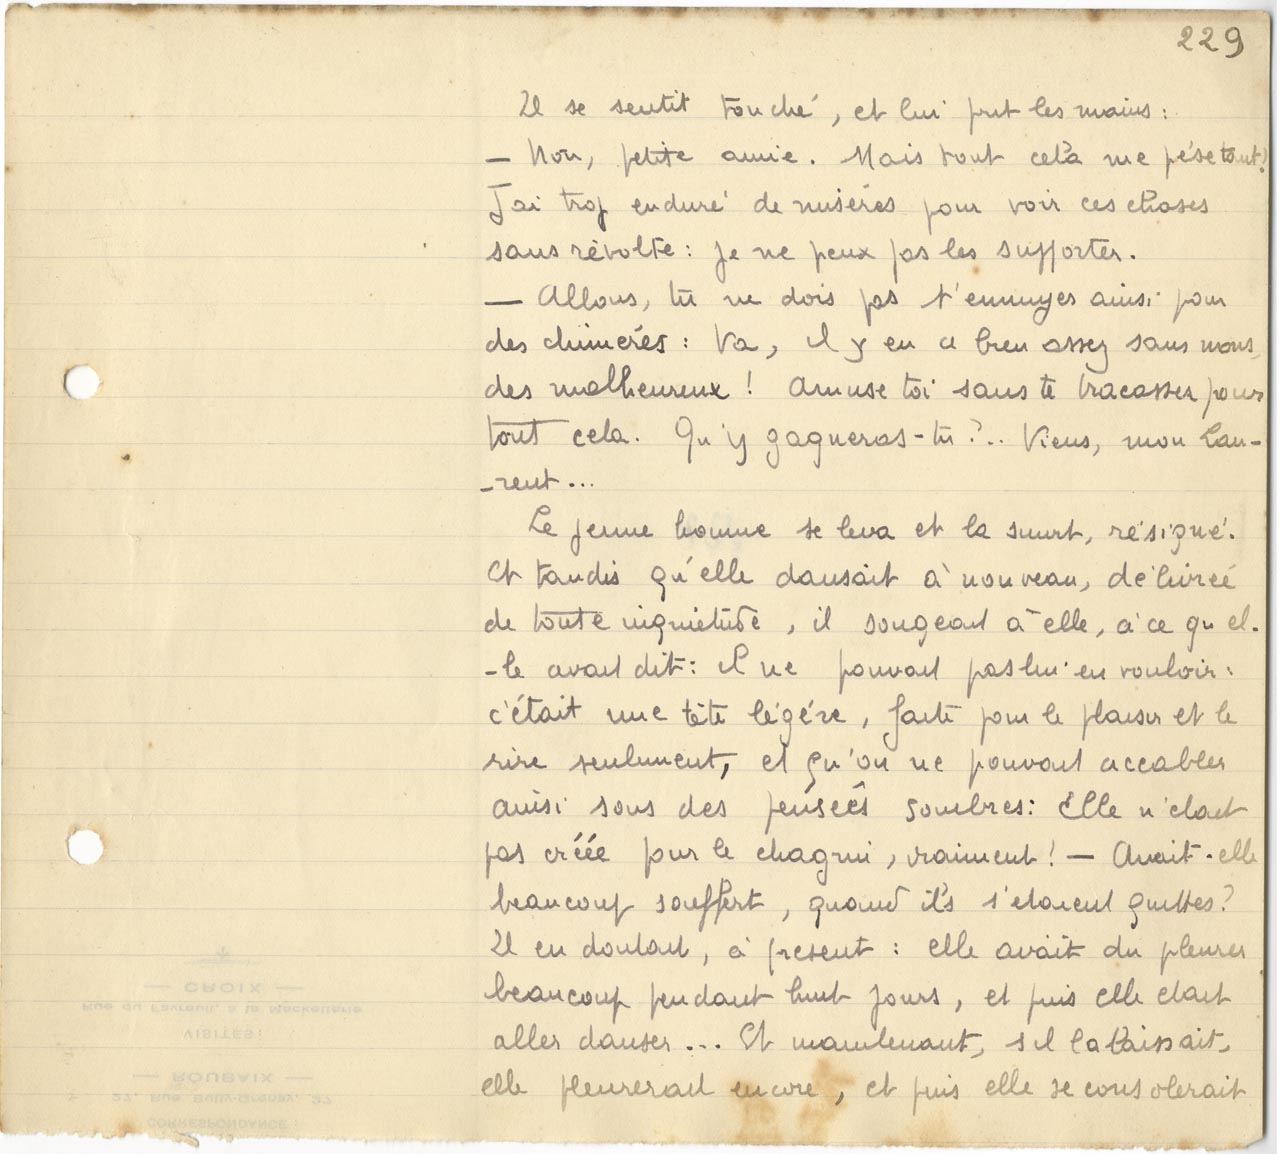 229
Il se sentit touché, et lui prit les mains :
— Non, petite amie. Mais tout cela me pèse tant !
J'ai trop enduré de misères pour voir ces choses
sans révolte : je ne peux pas les supporter.
— Allons, tu ne dois pas t'ennuyer ainsi pour
des chimères : Va, il y en a bien assez sans nous,
des malheureux ! Amuse toi sans te tracasser pour
tout cela. Qu'y gagneras-tu ?.. Viens, mon Lau-
-rent ...
Le jeune homme se leva et la suivit, résigné.
Et tandis qu'elle dansait à nouveau, délivrée
de toute inquiétude, il songeait à elle, à ce qu'el-
-le avait dit : il ne pouvait pas lui en vouloir :
c'était une tête légère, faite pour le plaisir et le
rire seulement, et qu'on ne pouvait accabler
ainsi sous des pensées sombres : Elle n'était
pas créée pour le chagrin, vraiment ! — Avait-elle
beaucoup souffert, quand ils s'étaient quittés ?
Il en doutait, à présent : elle avait du pleurer
beaucoup pendant huit jours, et puis elle était
aller danser ... Et maintenant, s'il la laissait,
elle pleurerait encore, et puis elle se consolerait
CORRESPONDANCE :
27, Rue Bully-Grenay, 27
— ROUBAIX —
VISITES :
Rue du Favreuil, à la Mackellerie
— CROIX —